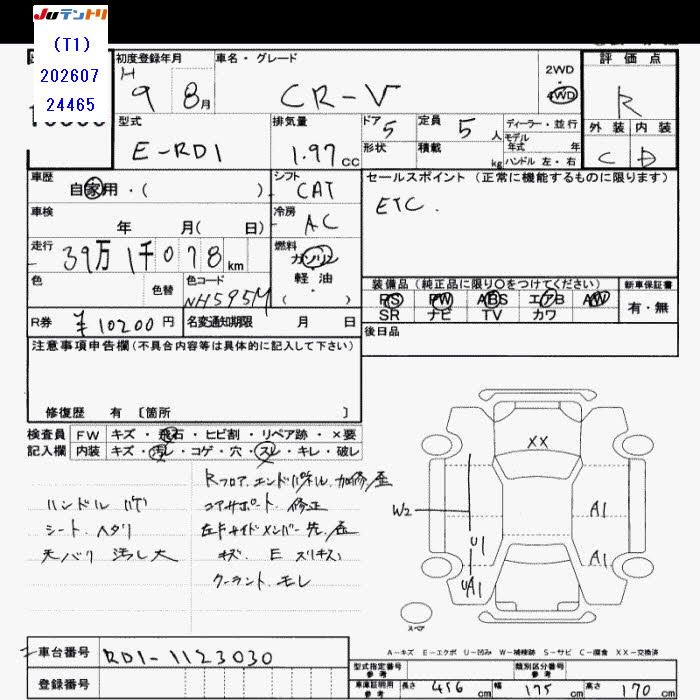 Juテントリ
(T1)
202607
24465
初度登録年月 車名・グレード 評価点
H 9 8月 CR-V 2WD
4WD
R
外装 内装
C D
型式 排気量 ドア 定員 ディーラー・並行
E-RD1 1.97cc 5 5人 モデル年式 年
形状 積載 kg ハンドル 左・右
車歴 シフト セールスポイント (正常に機能するものに限ります)
自家用・( ) CAT ETC.
車検 冷房
年 月( 日) AC
走行 燃料
39万1千078km ガソリン
軽油
( ・ )
色 色替 色コード
NH595M
装備品(純正品に限り〇をつけてください) 新車保証書
PS PW ABS エアB AW 有・無
SR ナビ TV カワ
R券 ¥10200円 名変通知期限 月 日
後日品
注意事項申告欄(不具合内容等は具体的に記入して下さい)
修復歴 有 〔箇所 〕
検査員 FW キズ・飛石・ヒビ割・リペア跡・×要
記入欄 内装 キズ・汚レ・コゲ・穴・スレ・キレ・破レ
Rフロア.エンドパネル.加修/歪
ハンドル ハゲ コアサポート.修正
シート.ヘタリ 左F サイドメンバー先.歪
天バリ 汚レ大 キズ. E スリキズ
クーラント.モレ
XX
W2
U1
UA1
A1
A1
スペア
A-キズ E-エクボ U-凹み W-補修跡 S-サビ C-腐食 XX-交換済
車台番号 RD1-1123030
登録番号
型式指定番号 参考 類別区分番号 参考
車庫証明用 参考 長さ 456cm 幅 175cm 高さ 70cm